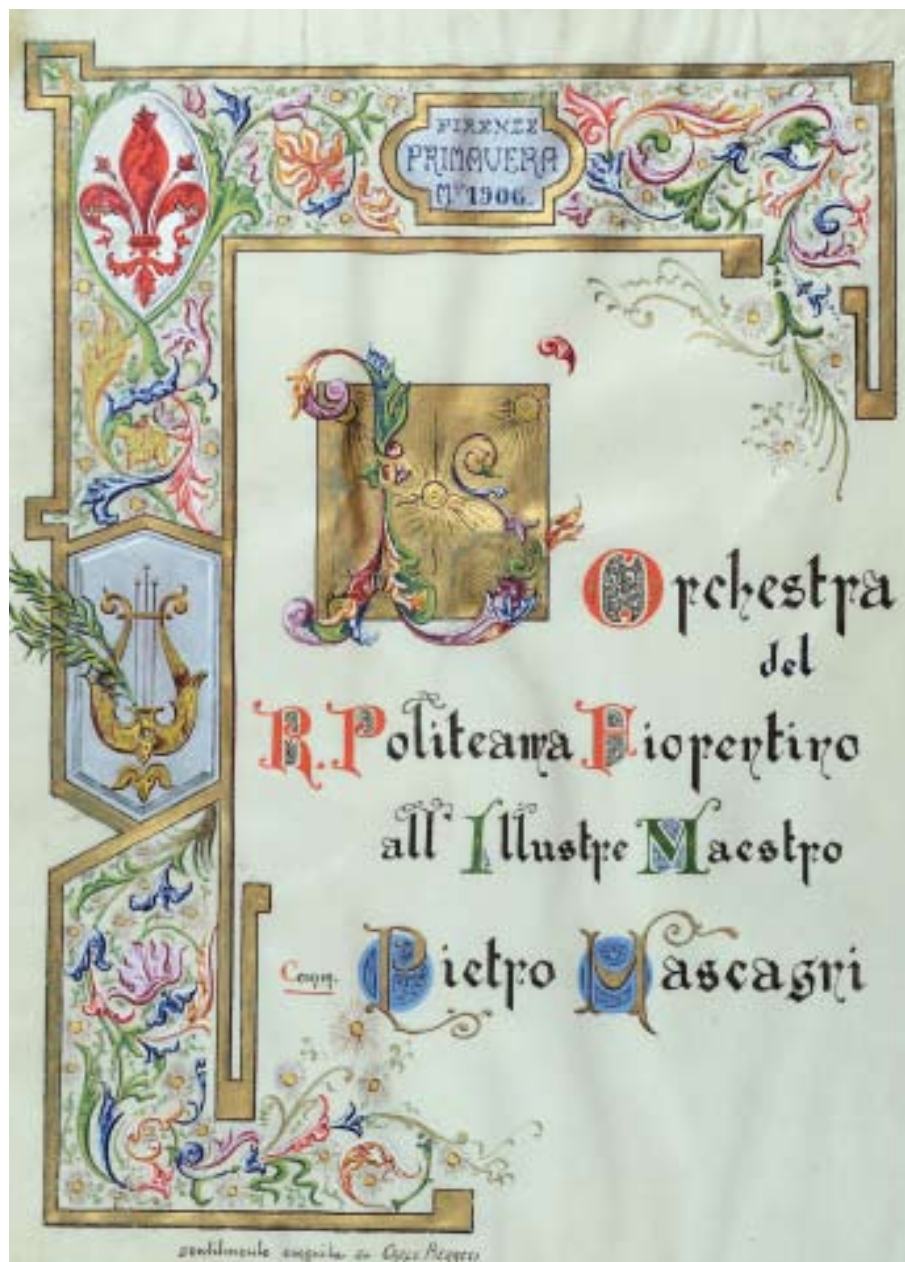 FIRENZE
PRIMAVERA
Mº 1906.
L'Orchestra
del
R. Politeama Fiorentino
all' Illustre Maestro
Comm. Pietro Mascagni
gentilmente eseguita da